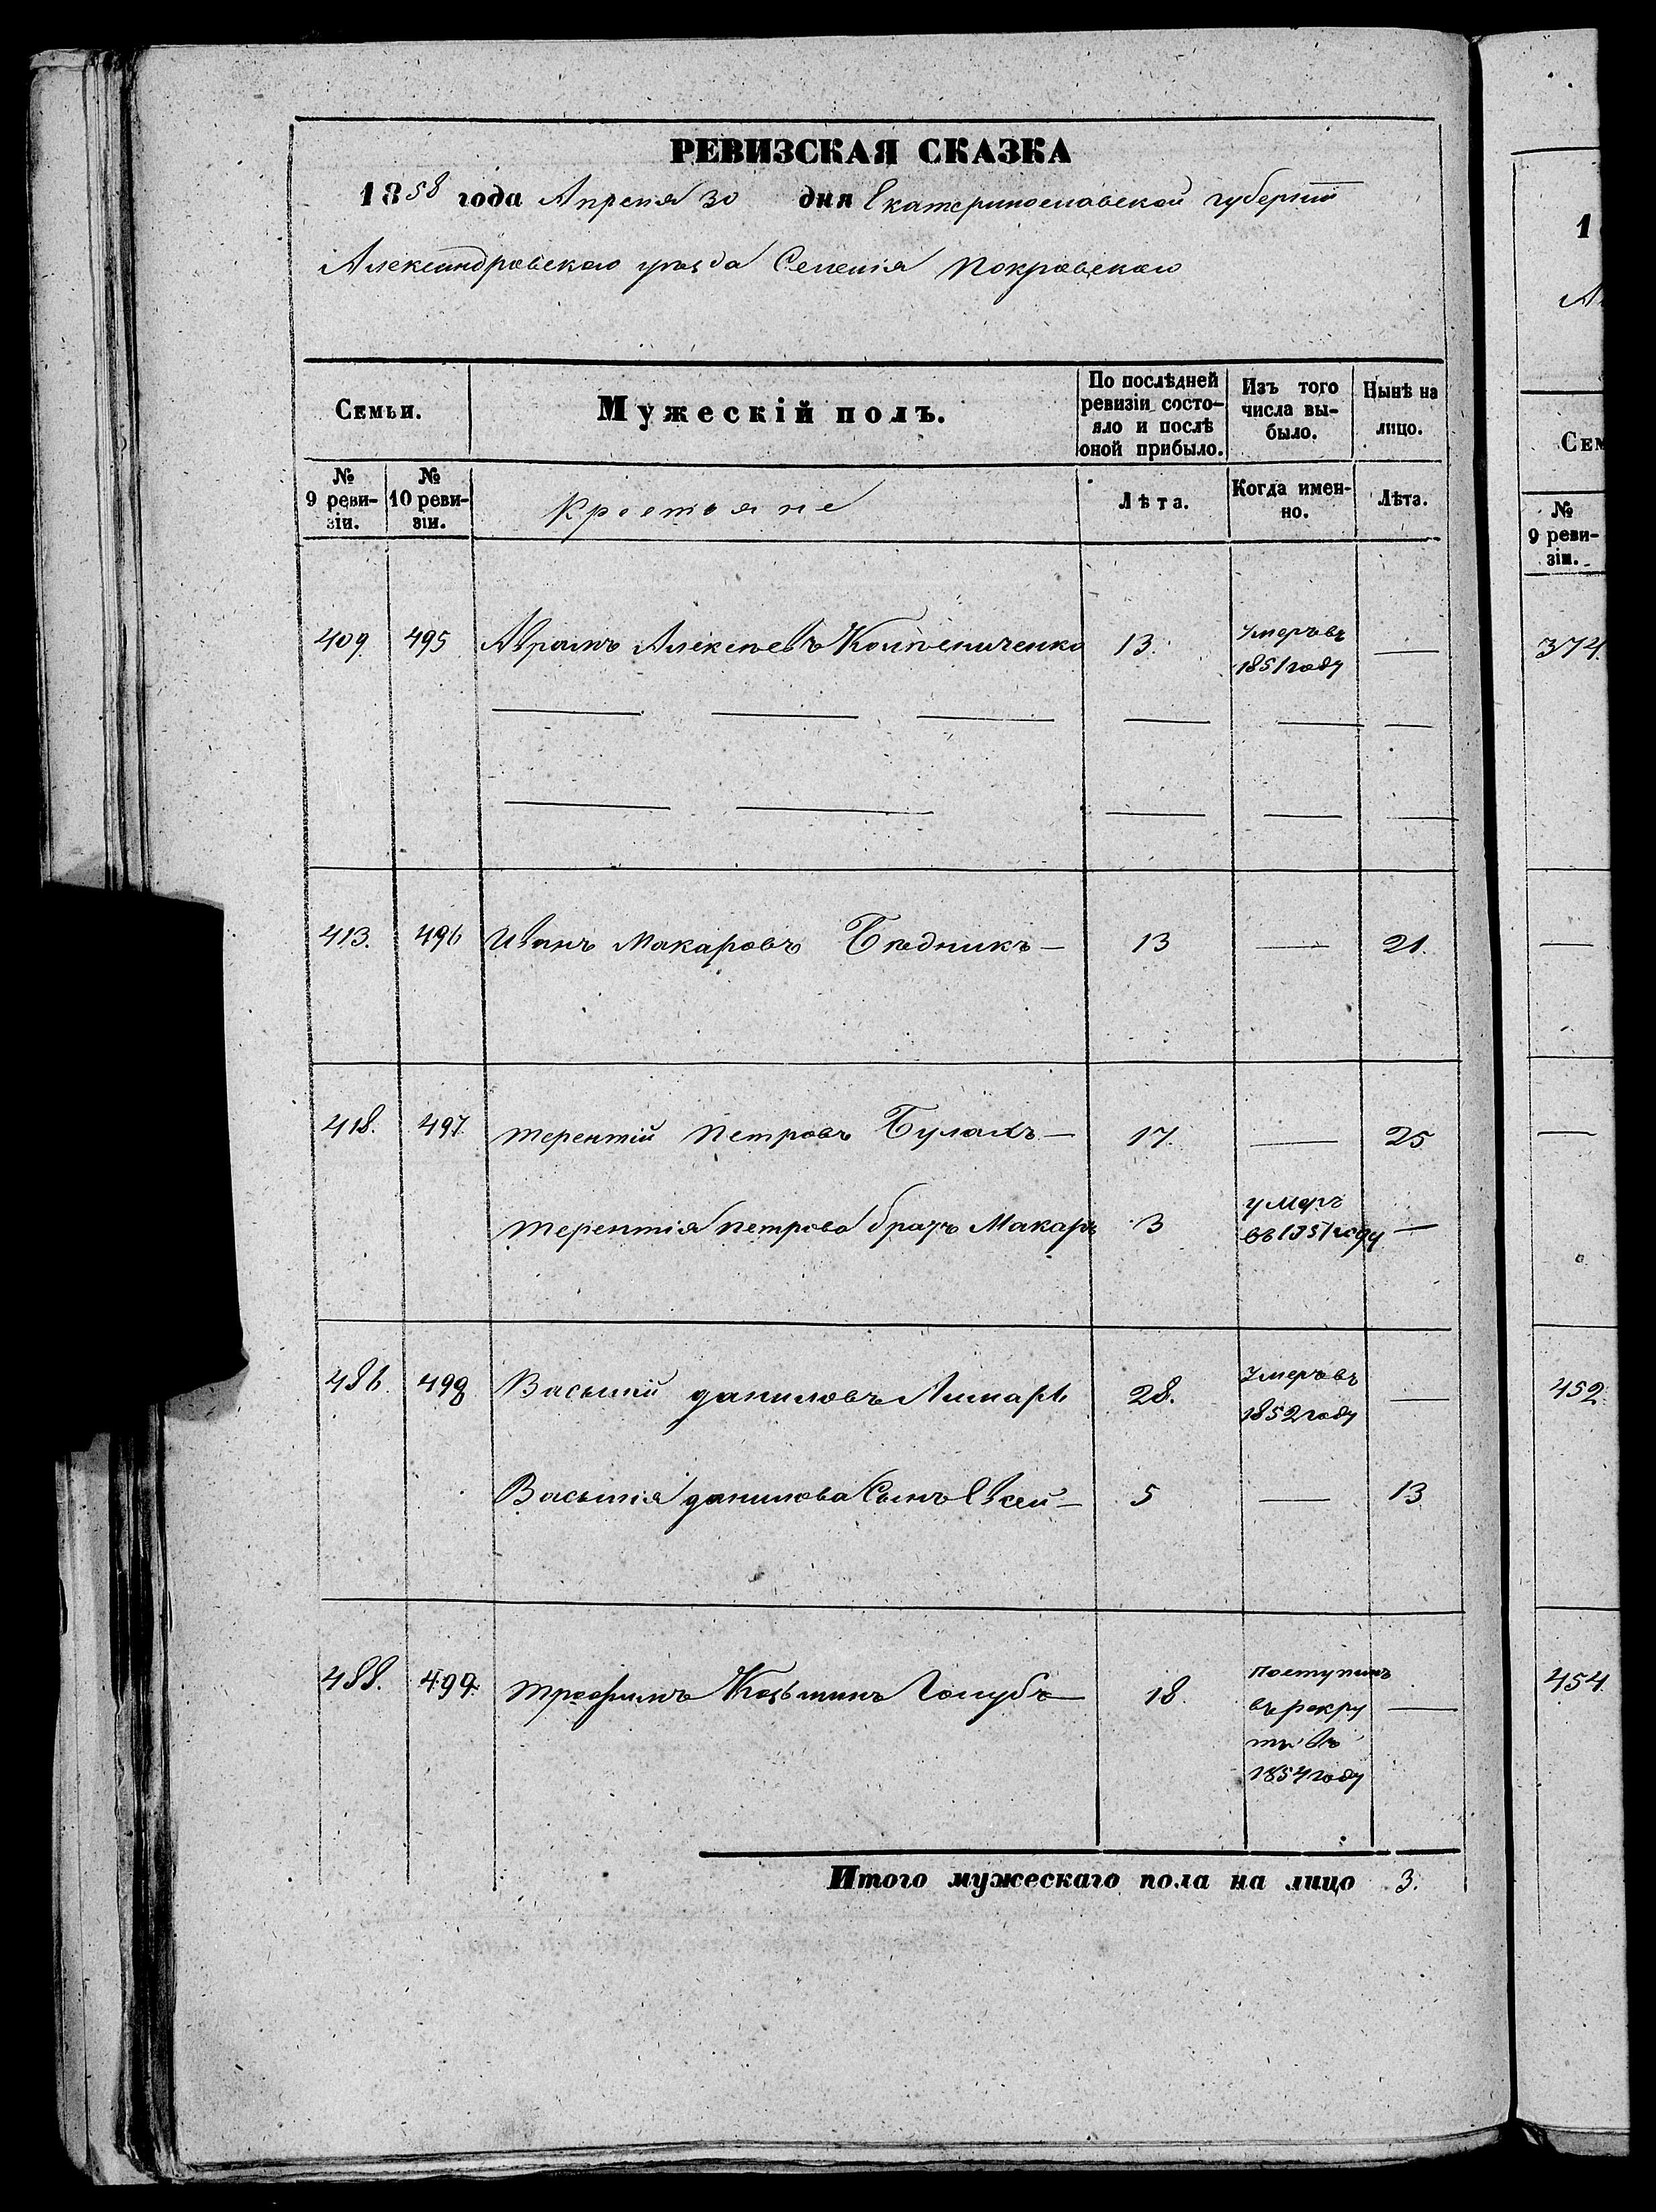 РЕВИЗСКАЯ СКАЗКА
1858 года Апреля 30 дня Екатеринославской губернии
Александровскаго уѣзда Селенія Покровскаго
Семьи.
Мужескій полъ.
По послѣдней ревизіи состо-яло и послѣ оной прибыло.
Изъ того числа вы-было.
Нынѣ на лицо.
№ 9 реви-зіи.
№ 10 реви-зіи.
Крестьяне
Лѣта.
Когда имен-но.
Лѣта.
409 495 Аврамъ Алексѣевъ 13. Умеръ въ 1851 году —
413. 496 Иванъ Макаровъ Бѣдникъ — 13 — 21.
418. 497 Терентій Петровъ Булахъ — 17. — 25
Терентія Петрова братъ Макаръ 3 умеръ въ 1851 году —
486. 498 Василій Даниловъ Лимарь 28. Умеръ въ 1852 году —
Василія Данилова Сынъ Евсей — 5 — 13
488. 499. Трофимъ Козьминъ Голубъ — 18. поступилъ въ рекру ты въ 1854 году —
Итого мужескаго пола на лицо 3.
1
А
Сем
№ 9 реви-зіи.
374.
452.
454.